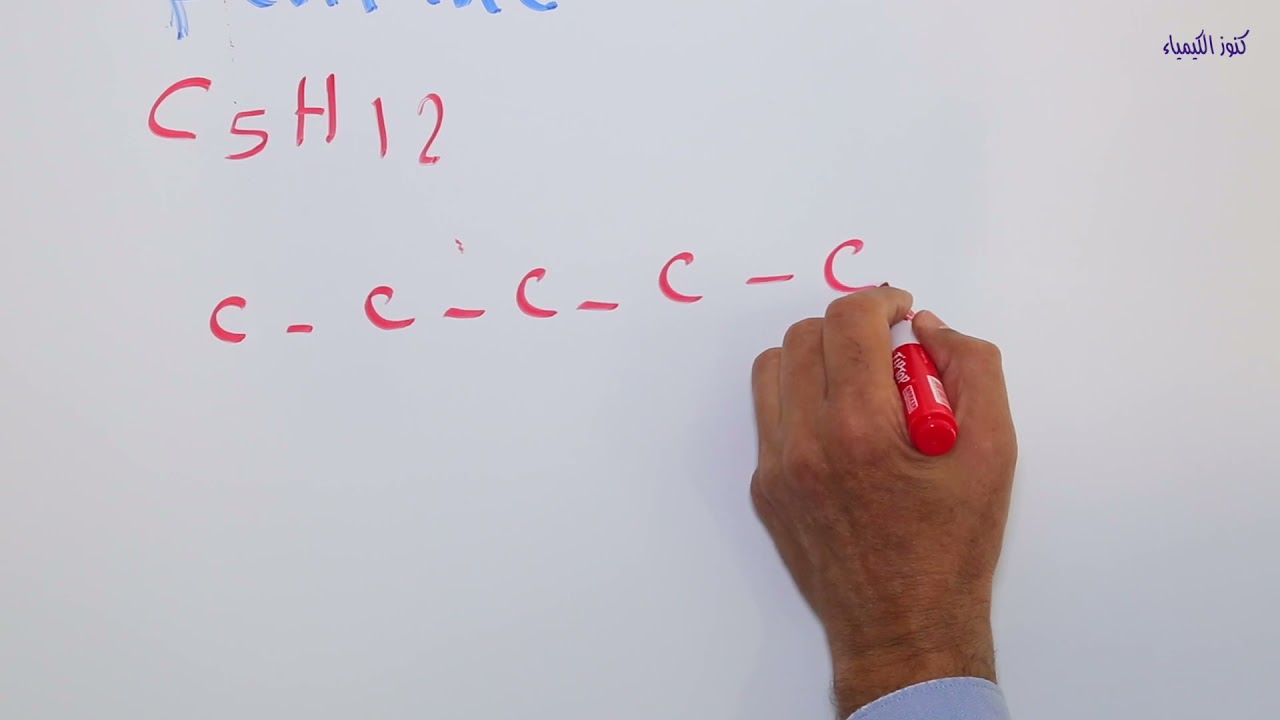 كنوز الكيمياء
C5H12
C - C - C - C - C
TIPTOP